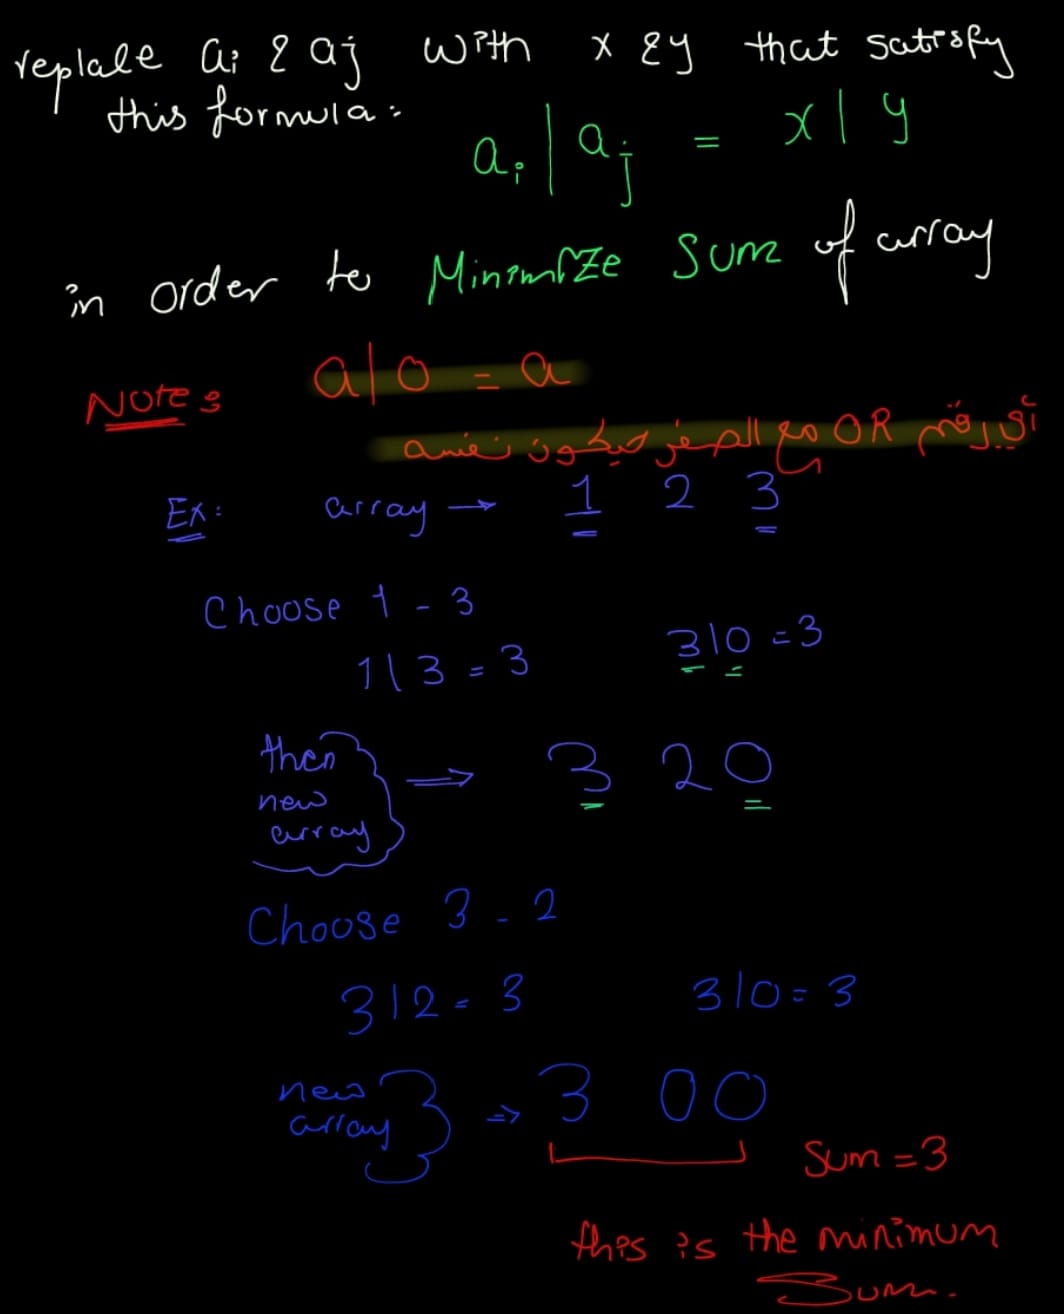 replace ai & aj with x & y that satisfy
this formula:
ai | aj = x | y
in order to Minimize Sum of array
Note: a | 0 = a
أي رقم OR مع الصفر حيكون نفسه
Ex: array → 1 2 3
Choose 1 - 3
1 | 3 = 3 3 | 0 = 3
then
new
array
⇒ 3 2 0
Choose 3 - 2
3 | 2 = 3 3 | 0 = 3
new
array
⇒ 3 0 0
Sum = 3
this is the minimum
Sum.